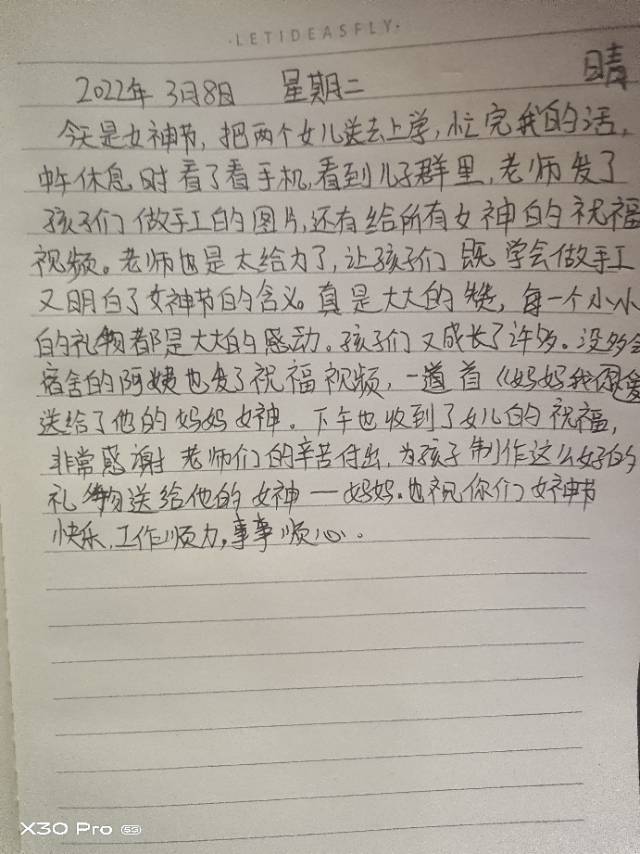 ·LETIDEASFLY·
2022年 3月8日 星期二 晴
今天是女神节,把两个女儿送去上学,忙完我的活,
中午休息时看了看手机,看到儿子群里,老师发了
孩子们做手工的图片,还有给所有女神的祝福
视频。老师也是太给力了,让孩子们既学会做手工
又明白了女神节的含义。真是大大的赞,每一个小小
的礼物都是大大的感动。孩子们又成长了许多。没多会
宿舍的阿姨也发了祝福视频,一道首《妈妈我很爱
送给了他的妈妈女神。下午也收到了女儿的祝福,
非常感谢老师们的辛苦付出,为孩子制作这么好的
礼物送给他的女神——妈妈。也祝你们女神节
快乐,工作顺力,事事顺心。
X30 Pro 5G